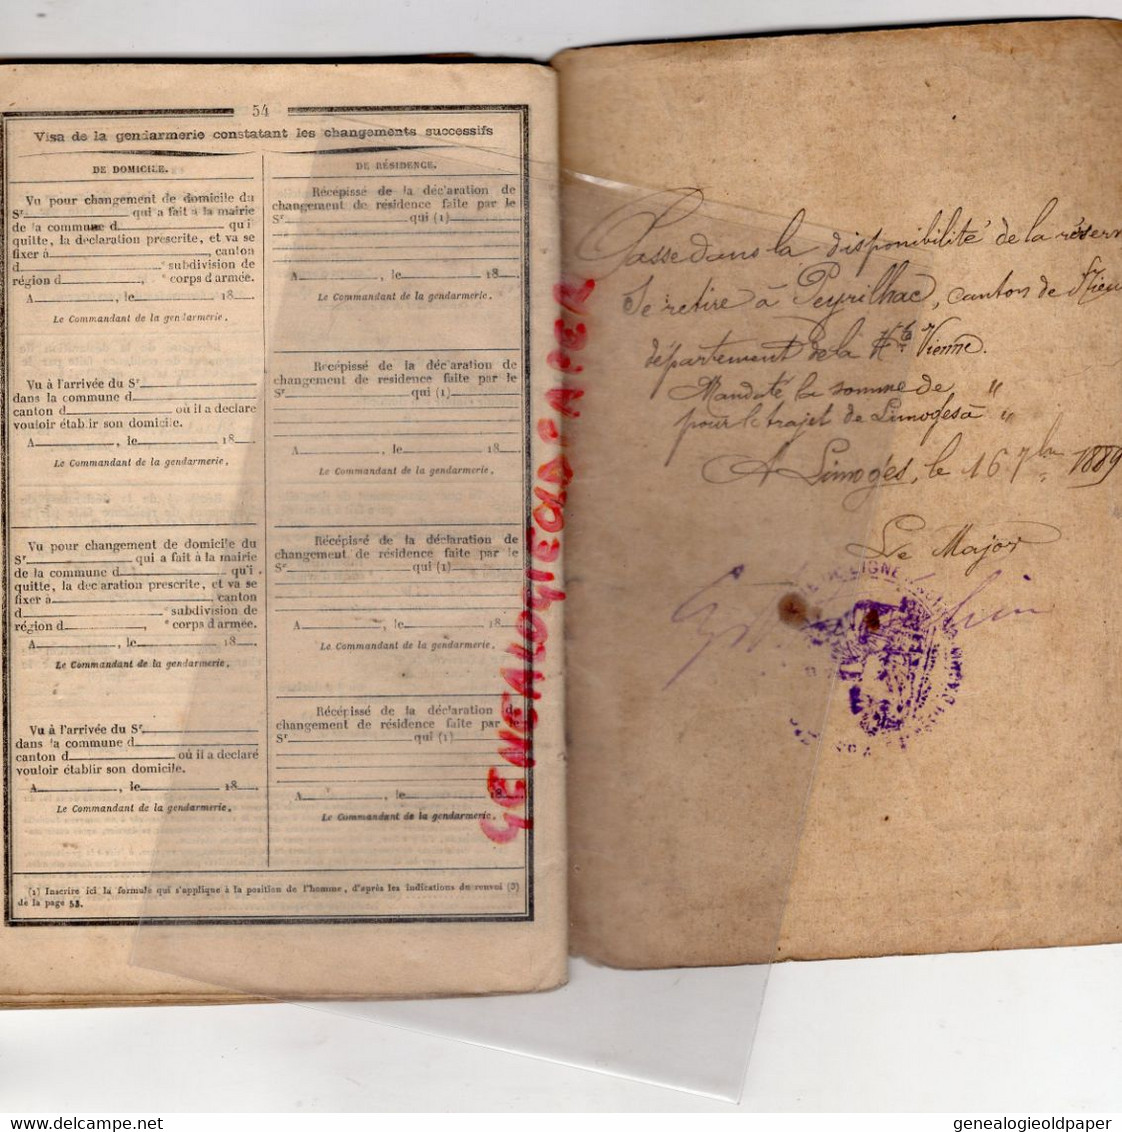 54
Visa de la gendarmerie constatant les changements successifs
DE DOMICILE.
Vu pour changement de domicile du
Sr qui a fait à la mairie
de la commune d qu'i
quitte, la déclaration prescrite, et va se
fixer à , canton
d ° subdivision de
région d , ° corps d'armée.
A , le 18 .
Le Commandant de la gendarmerie.
Vu à l'arrivée du Sr
dans la commune d
canton d où il a declaré
vouloir établir son domicile.
A , le 18 .
Le Commandant de la gendarmerie.
Vu pour changement de domicile du
Sr qui a fait à la mairie
de la commune d qu'i
quitte, la déclaration prescrite, et va se
fixer à canton
d ° subdivision de
région d , ° corps d'armée.
A , le 18 .
Le Commandant de la gendarmerie.
Vu à l'arrivée du Sr
dans la commune d
canton d où il a déclaré
vouloir établir son domicile.
A , le 18 .
Le Commandant de la gendarmerie.
DE RÉSIDENCE.
Récépissé de la déclaration de
changement de résidence faite par le
Sr qui (1)
A , le 18 .
Le Commandant de la gendarmerie.
Récépissé de la déclaration de
changement de résidence faite par le
Sr qui (1)
A , le 18 .
Le Commandant de la gendarmerie.
Récépissé de la déclaration de
changement de résidence faite par le
Sr qui (1)
A , le 18 .
Le Commandant de la gendarmerie.
Récépissé de la déclaration de
changement de résidence faite par le
Sr qui (1)
A , le 18 .
Le Commandant de la gendarmerie.
(1) Inscrire ici la formule qui s'applique à la position de l'homme, d'après les indications du renvoi (3)
de la page 53.
GENEALOGIEOLDPAPER
Passe dans la disponibilité de la réserv
Se retire à Peyrilhac, canton de Nieu
département de la Hte Vienne.
Mandaté la somme de "
pour le trajet de Limoges à "
A Limoges, le 16 7bre 1889
Le Major
DE LIGNE
genealogieoldpaper